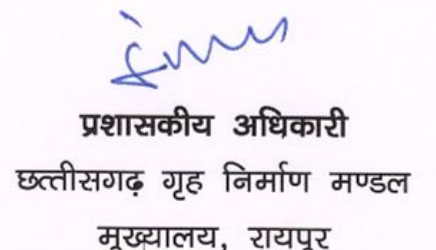 प्रशासकीय अधिकारी
छत्तीसगढ़ गृह निर्माण मण्डल
मुख्यालय, रायपुर